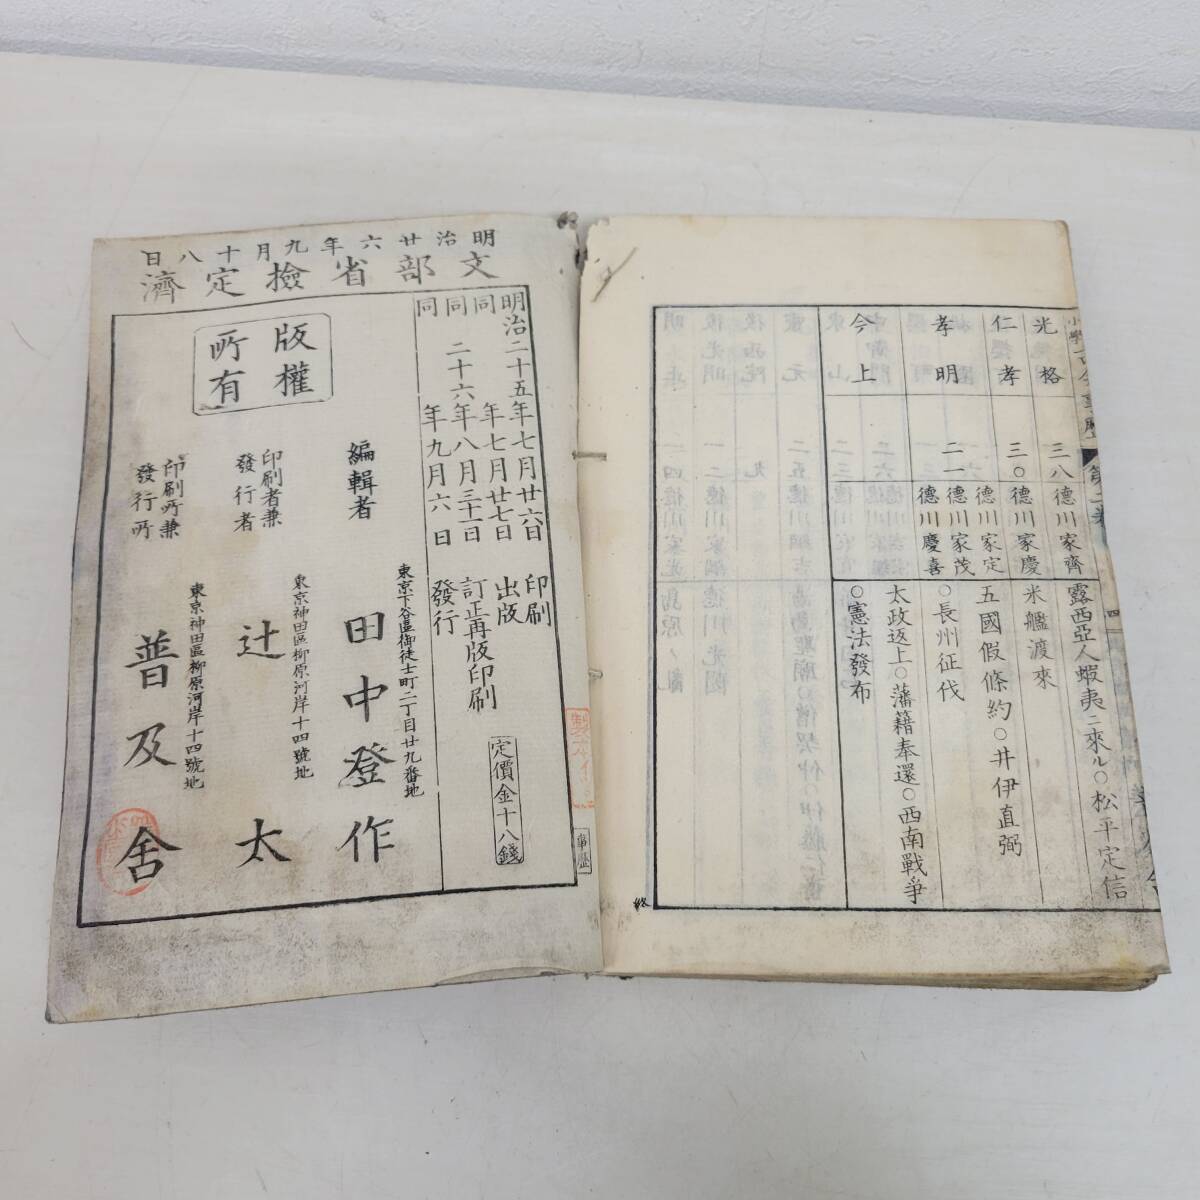 光格
三八
德川家齊
露西亞人蝦夷ニ來ル○松平定信
仁孝
三〇
德川家慶
米艦渡來
德川家定
五國假條約○井伊直弼
孝明
二一
德川家茂
○長州征伐
德川慶喜
太政返上○藩籍奉還○西南戰爭
今上
○憲法發布
終
明治廿六年九月十八日
文部省檢定濟
明治二十五年七月廿六日印刷
同年七月廿七日出版
同二十六年八月三十一日訂正再版印刷
同年九月六日發行
定價金十八錢
版權所有
編輯者
東京下谷區御徒士町二丁目廿九番地
田中登作
印刷者兼發行者
東京神田區柳原河岸十四號地
辻太
印刷所兼發行所
東京神田區柳原河岸十四號地
普及舍